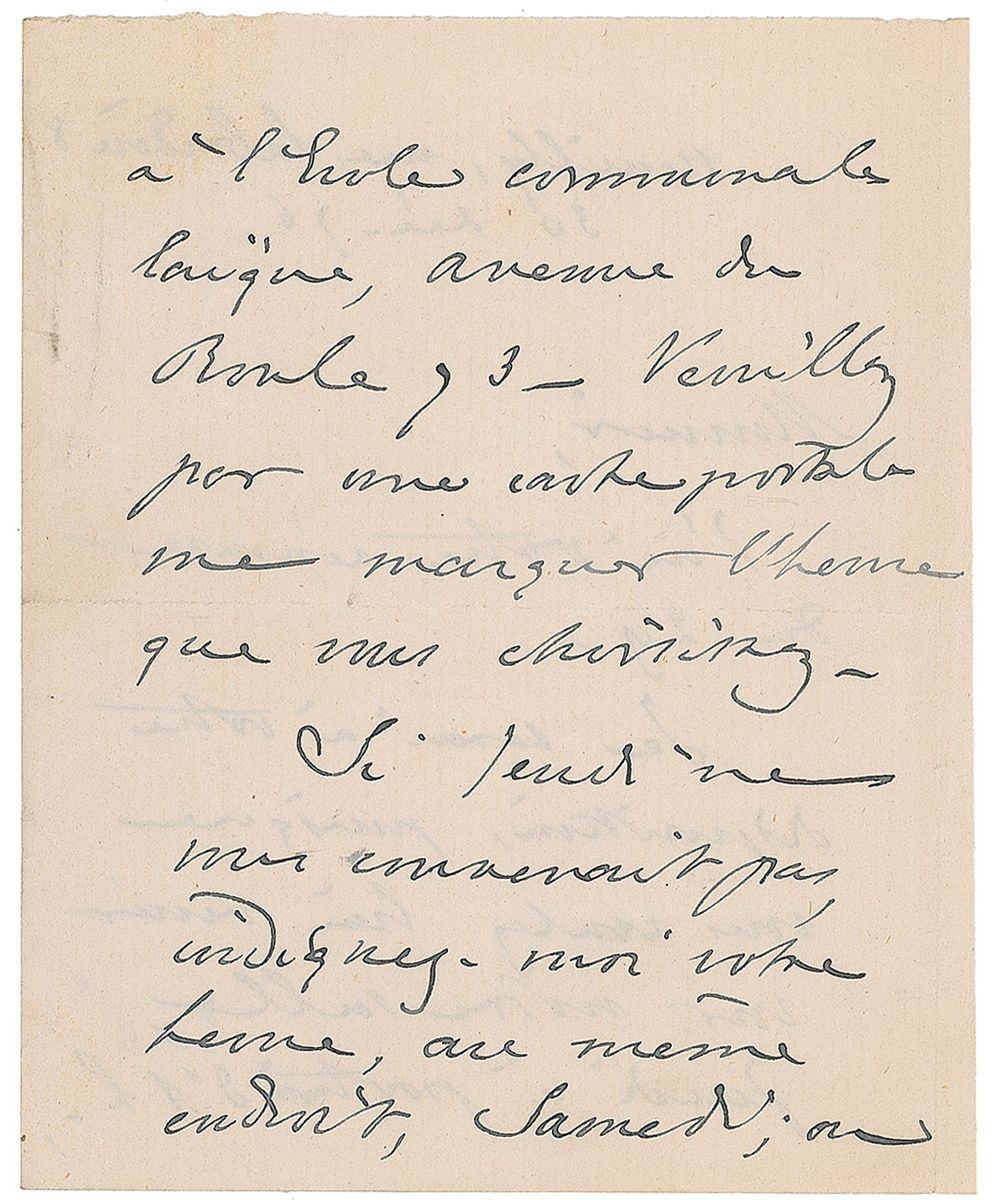 à l'Ecole communale
laïque, avenue du
Roule 93 _ Neuilly
par une carte postale
me marquer l'heure
que vous choisissez _
Si Jeudi ne
vous convenait pas,
indiquez-moi votre
heure, au même
endroit, Samedi, ou